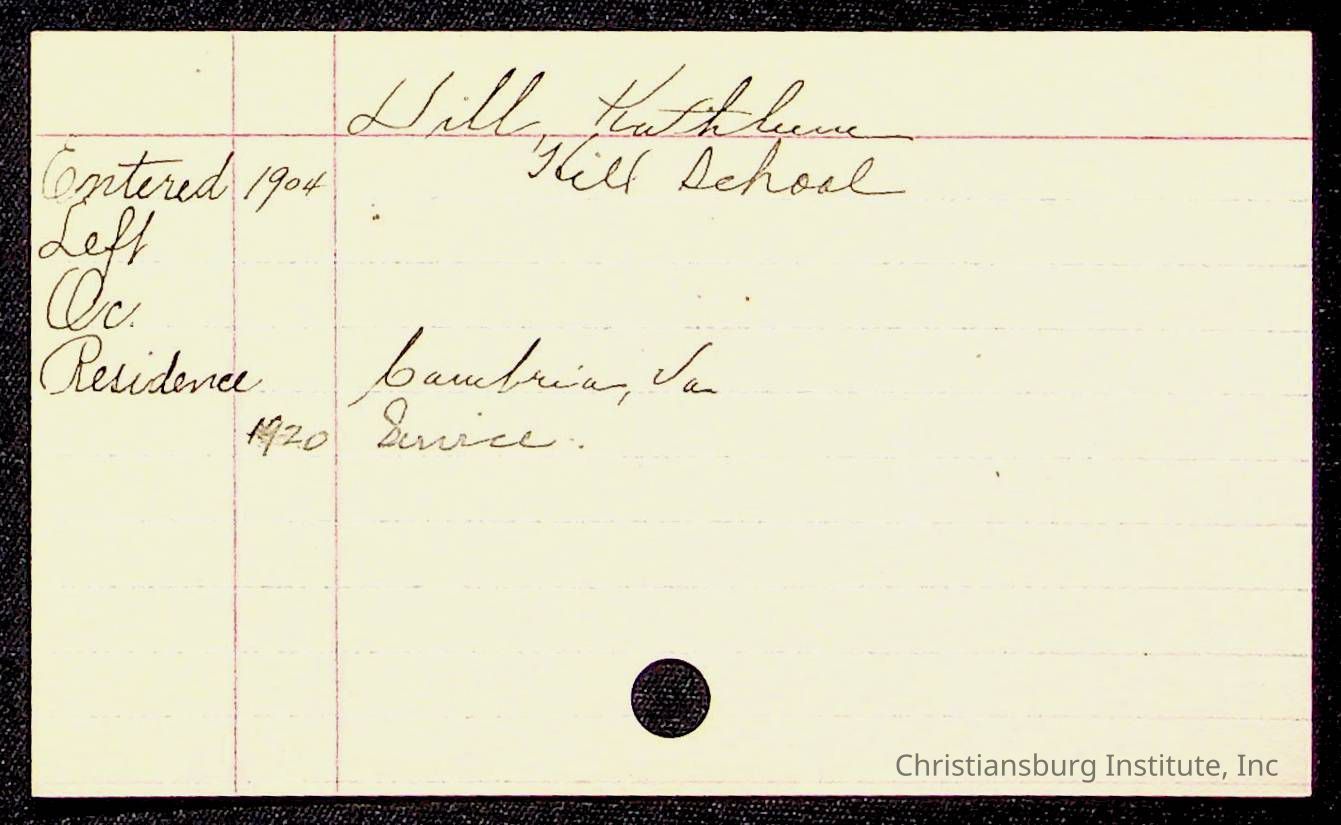 Hill, Kathleen
Hill School
Entered 1904
Left
Oc.
Residence Cambria, Va
1920 Service.
Christiansburg Institute, Inc